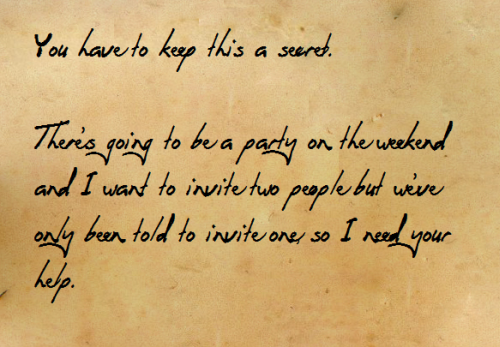 You have to keep this a secret.
There's going to be a party on the weekend
and I want to invite two people but we've
only been told to invite one, so I need your
help.